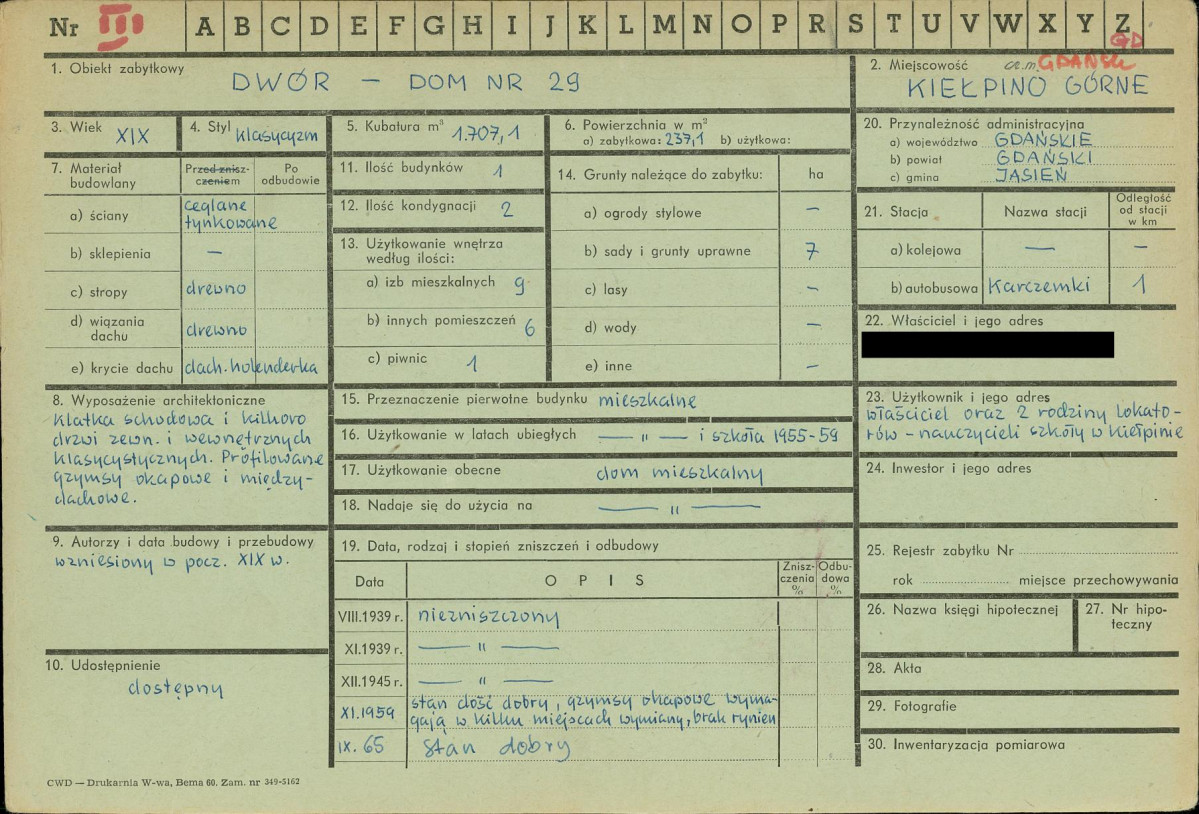 Nr III A B C D E F G H I J K L M N O P R S T U V W X Y Z
GD
1. Obiekt zabytkowy
DWÓR – DOM NR 29
2. Miejscowość GDAŃSK
KIEŁPINO GÓRNE
3. Wiek XIX
4. Styl klasycyzm
5. Kubatura m³ 1.707,1
6. Powierzchnia w m²
a) zabytkowa: 237,1 b) użytkowa:
7. Materiał budowlany
Przed znisz-
czeniem
Po
odbudowie
a) ściany ceglane
tynkowane
b) sklepienia —
c) stropy drewno
d) wiązania
dachu drewno
e) krycie dachu dach. holenderka
8. Wyposażenie architektoniczne
klatka schodowa i kilkoro
drzwi zewn. i wewnętrznych
klasycystycznych. Profilowane
gzymsy okapowe i między-
dachowe.
9. Autorzy i data budowy i przebudowy
wzniesiony w pocz. XIX w.
10. Udostępnienie
dostępny
11. Ilość budynków 1
12. Ilość kondygnacji 2
13. Użytkowanie wnętrza
według ilości:
a) izb mieszkalnych 9
b) innych pomieszczeń 6
c) piwnic 1
14. Grunty należące do zabytku: ha
a) ogrody stylowe –
b) sady i grunty uprawne 7
c) lasy –
d) wody –
e) inne –
15. Przeznaczenie pierwotne budynku mieszkalne
16. Użytkowanie w latach ubiegłych — " — i szkoła 1955-59
17. Użytkowanie obecne dom mieszkalny
18. Nadaje się do użycia na — " —
19. Data, rodzaj i stopień zniszczeń i odbudowy
Data
O P I S
Znisz-
czenia
%
Odbu-
dowa
%
VIII.1939 r. niezniszczony
XI.1939 r. — " —
XII.1945 r. — " —
XI.1959 stan dość dobry, gzymsy okapowe wyma-
gają w kilku miejscach wymiany, brak rynien
IX. 65 stan dobry
20. Przynależność administracyjna
a) województwo GDAŃSKIE
b) powiat GDAŃSKI
c) gmina JASIEŃ
21. Stacja
Nazwa stacji
Odległość
od stacji
w km
a) kolejowa — –
b) autobusowa Karczemki 1
22. Właściciel i jego adres
23. Użytkownik i jego adres
właściciel oraz 2 rodziny lokato-
rów – nauczycieli szkoły w Kiełpinie
24. Inwestor i jego adres
25. Rejestr zabytku Nr
rok miejsce przechowywania
26. Nazwa księgi hipotecznej
27. Nr hipo-
teczny
28. Akta
29. Fotografie
30. Inwentaryzacja pomiarowa
CWD — Drukarnia W-wa, Bema 60. Zam. nr 349-5162